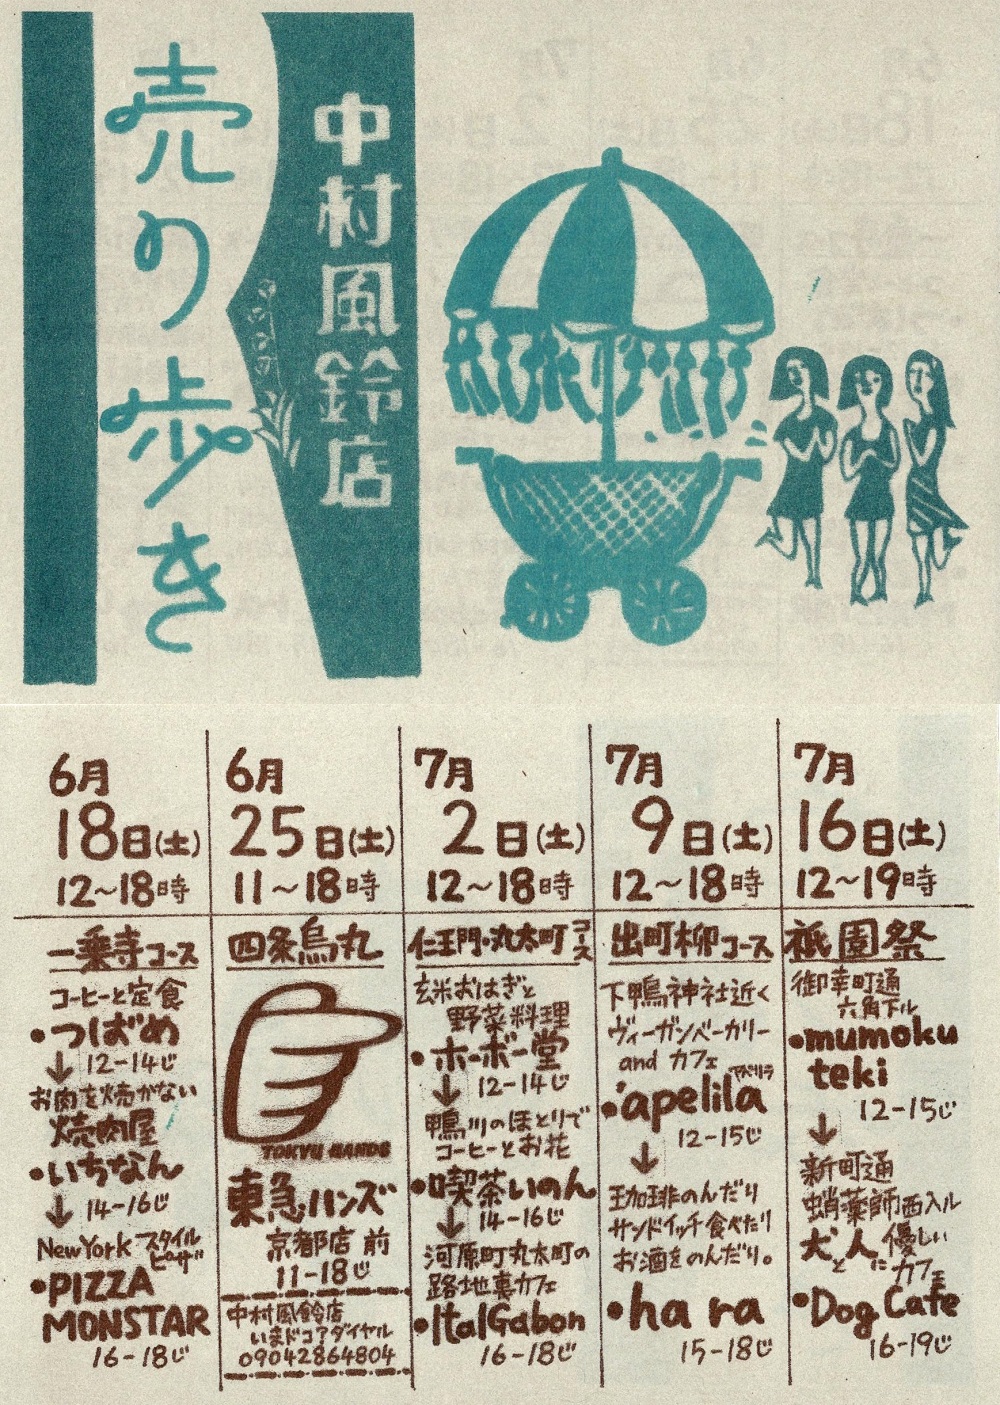 売り歩き
中村風鈴店
6月
18日(土)
12〜18時
一乗寺コース
コーヒーと定食
・つばめ
↓ 12-14じ
お肉を焼かない
焼肉屋
・いちなん
↓ 14-16じ
NewYorkスタイル
ピーザ
・PIZZA
MONSTAR
16-18じ
6月
25日(土)
11〜18時
四条烏丸
TOKYU HANDS
東急ハンズ
京都店前
11-18じ
中村風鈴店
いまドコ?ダイヤル
09042864804
7月
2日(土)
12〜18時
仁王門・丸太町コース
玄米おはぎと
野菜料理
・ホーボー堂
↓ 12-14じ
鴨川のほとりで
コーヒーとお花
・喫茶いのん
↓ 14-16じ
河原町丸太町の
路地裏カフェ
・ItalGabon
16-18じ
7月
9日(土)
12〜18時
出町柳コース
下鴨神社近く
ヴィーガンベーカリー
and カフェ
アペリラ
・apelila
12-15じ
↓
珈琲のんだり
サンドイッチ食べたり
お酒をのんだり。
・hara
15-18じ
7月
16日(土)
12〜19時
祇園祭
御幸町通
六角下ル
・mumoku
teki
12-15じ
↓
新町通
蛸薬師西入ル
犬と人に優しい
カフェ
・Dog Cafe
16-19じ